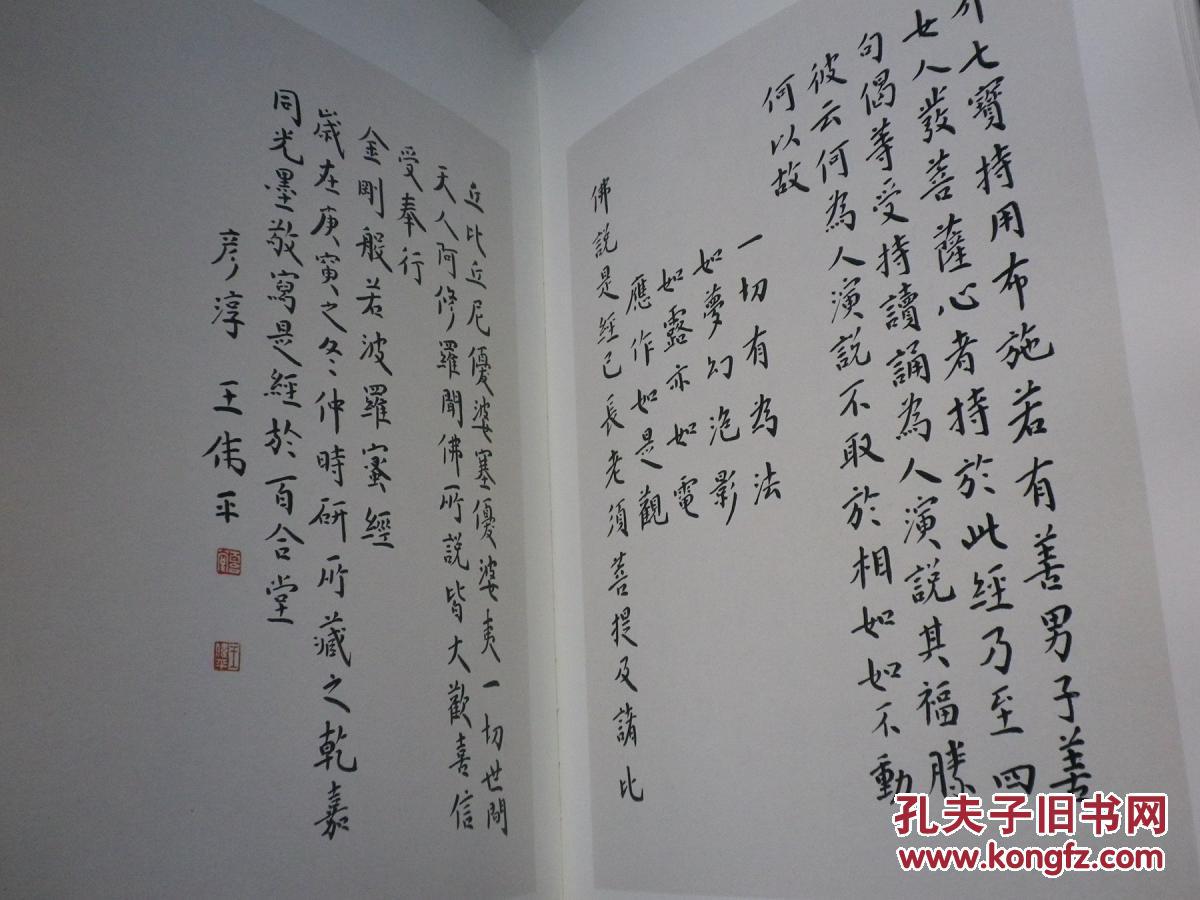 介七寶持用布施若有善男子善
女人發菩薩心者持於此經乃至四
句偈等受持讀誦為人演說其福勝
彼云何為人演説不取於相如如不動
何以故
一切有為法
如夢幻泡影
如露亦如電
應作如是觀
佛説是經已長老須菩提及諸比
丘比丘尼優婆塞優婆夷一切世間
天人阿修羅聞佛所説皆大歡喜信
受奉行
金剛般若波羅蜜經
歲在庚寅之冬仲時研所藏之乾嘉
同光墨敬寫是經於百合堂
彦淳 王伟平
孔夫子旧书网
www.kongfz.com